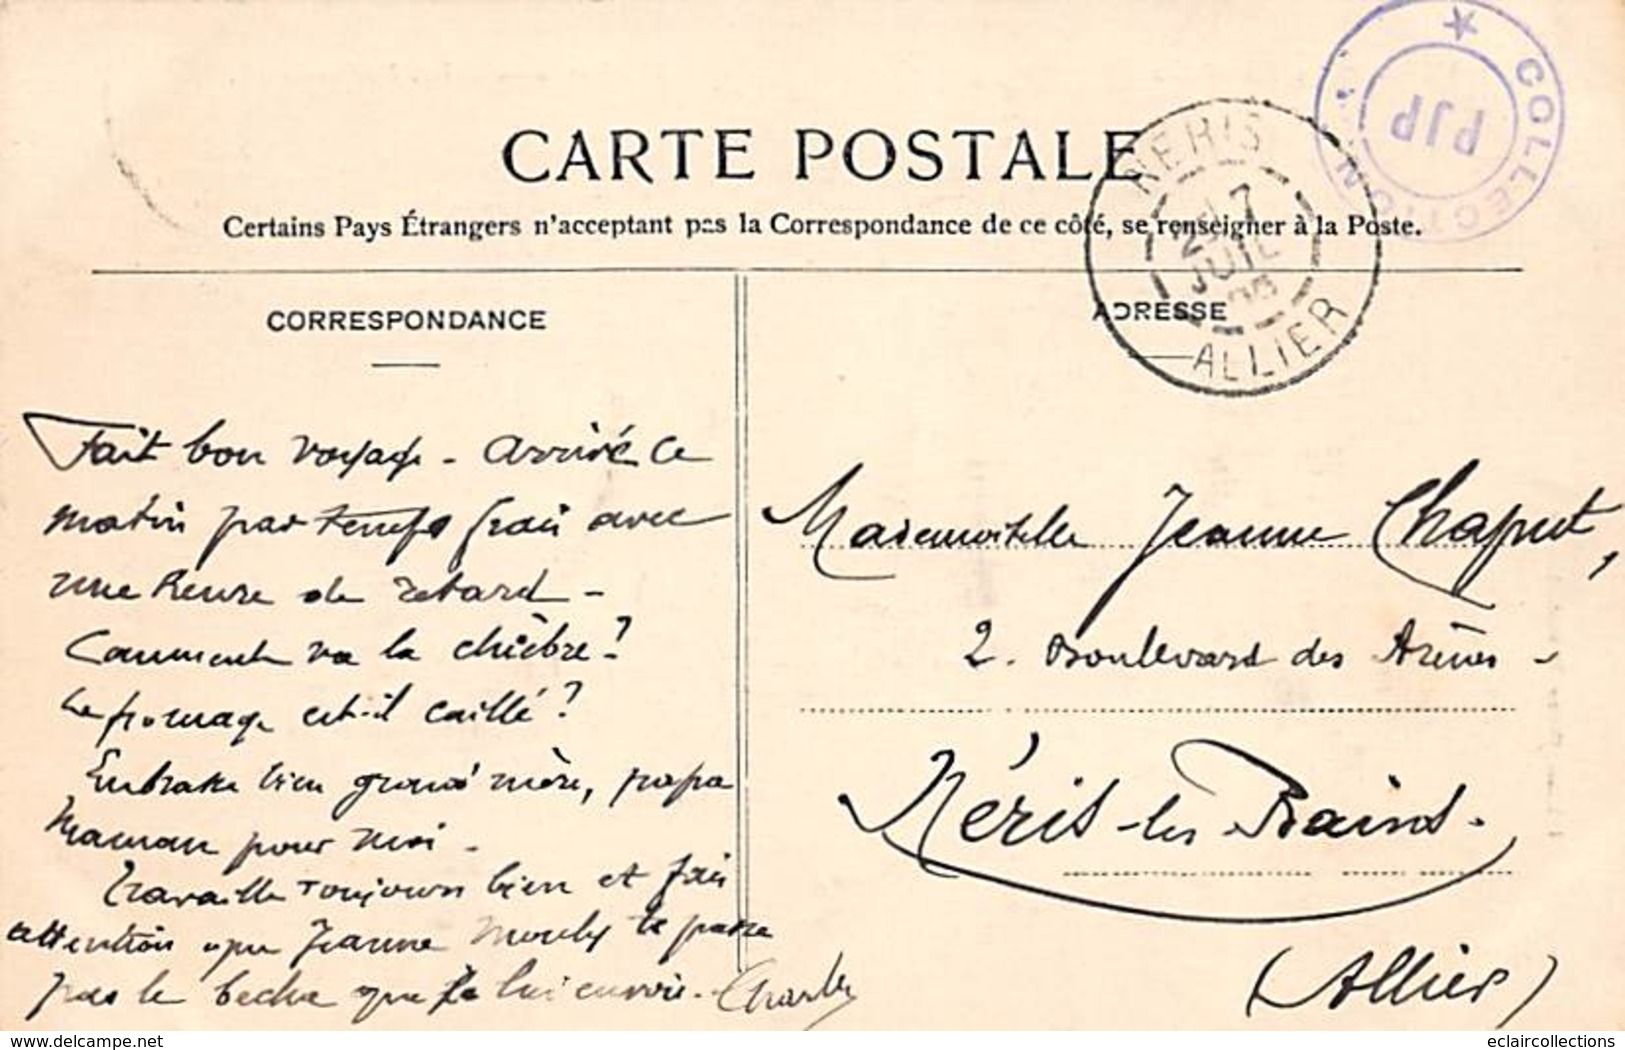 CARTE POSTALE
Certains Pays Étrangers n'acceptant pas la Correspondance de ce côté, se renseigner à la Poste.
COLLECTION
PJP
NERIS
27
JUIL
ALLIER
CORRESPONDANCE
ADRESSE
Fait bon voyage - Arrivé ce
matin par temps frais avec
une heure de retard -
Comment va la chièbre ?
Le fromage est-il caillé ?
Embrasse bien grand'mère, papa
Maman pour moi -
Travaille toujours bien et fais
attention que Jeanne te passe
pas le que je lui envoie - Charles
Mademoiselle Jeanne Chaput,
2. Boulevard des Arènes -
Néris-les-Bains.
(Allier)
delcampe.net
eclaircollections